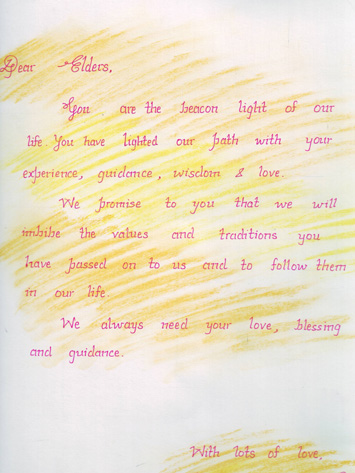 Dear Elders,
You are the beacon light of our
life. You have lighted our path with your
experience, guidance, wisdom & love.
We promise to you that we will
imbibe the values and traditions you
have passed on to us and to follow them
in our life.
We always need your love, blessing
and guidance.
With lots of love,